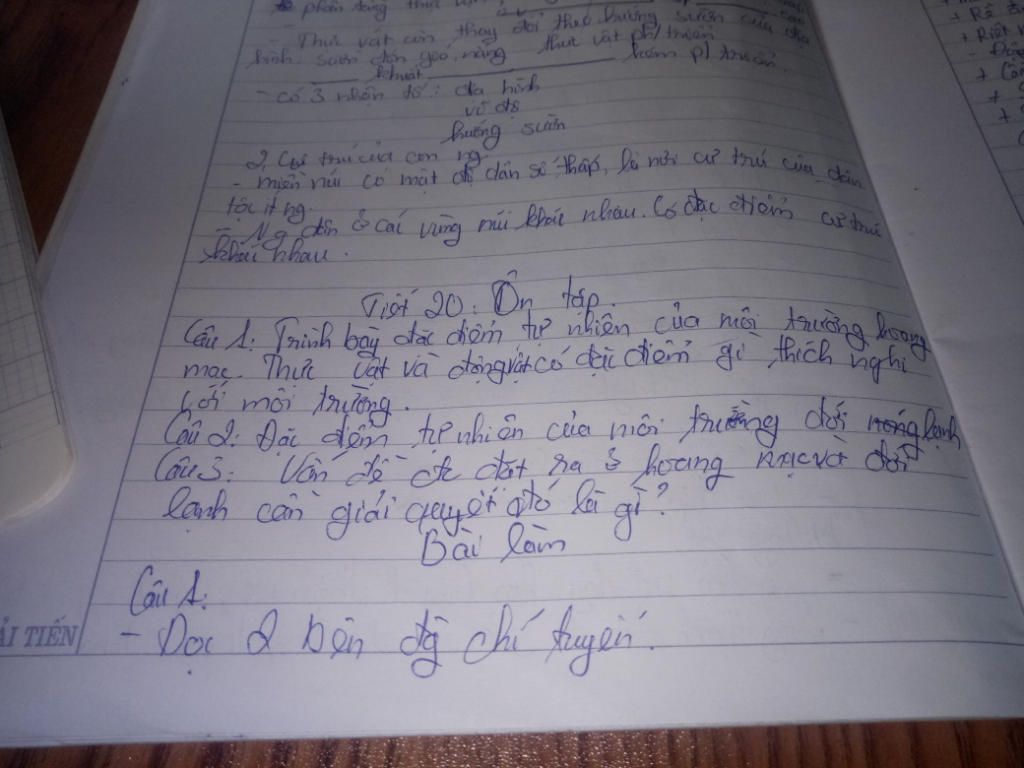 phân tầng thực vật
- Thực vật còn thay đổi theo hướng sườn của địa
hình sườn đón gió, nắng thực vật pt/triển
khuất kém pt triển.
- có 3 nhân tố: địa hình
vĩ độ
hướng sườn
2, Cư trú của con ng
- miền núi có mật độ dân số thấp, là nơi cư trú của dân
tộc ít ng.
- Ng dân ở các vùng núi khác nhau. Có đặc điểm cư trú
khác nhau.
Tiết 20: Ôn tập.
Câu 1: Trình bày đặc điểm tự nhiên của môi trường hoang
mạc. Thực vật và động vật có đặc điểm gì thích nghi
với môi trường.
Câu 2: Đặc điểm tự nhiên của môi trường đới nóng lạnh
Câu 3: Vấn đề đc đặt ra ở hoang mạc và đới
lạnh cần giải quyết đó là gì?
Bài làm
Câu 1:
- Dọc 2 bên đg chí tuyến.
ẢI TIẾN
+ Rê
+ Riết